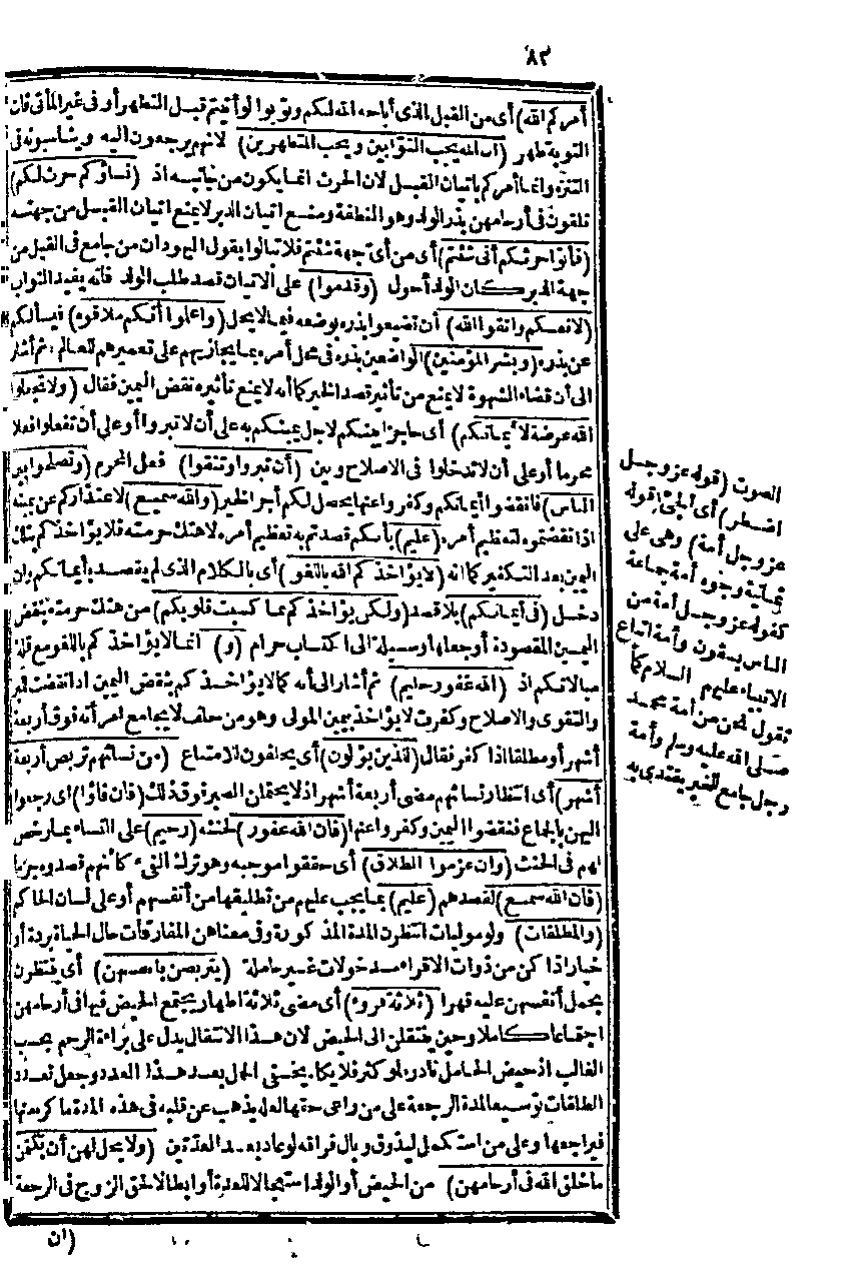 ٨٢
أمركم الله) أى من القبل الذى أباحه الله لكم وتوبوا لو أتيتم قبل التطهر أو فى غير المأتى فان
التوبة تطهر (ان الله يحب التوابين ويحب المتطهرين) لانهم يرجعون اليه ويناسبونه فى
التنزه وانما أمركم باتيان القبل لان الحرث انما يكون من جانبه اذ (نساؤكم حرث لكم)
تلقون فى أرحامهن بذر الولد وهو النطفة ومنع اتيان الدبر لا يمنع اتيان القبل من جهته
(فأتوا حرثكم أنى شئتم) أى من أى جهة شئتم فلا تبالوا بقول اليهود ان من جامع فى القبل من
جهة الدبر كان الولد أحول (وقدموا) على الاتيان قصد طلب الولد فانه يفيد الثواب
(لانفسكم واتقوا الله) أن تضيعوا بذره بوضعه فيما لا يحل (واعلموا أنكم ملاقوه) فيسألكم
عن بذره (وبشر المؤمنين) الواضعين بذره فى محل أمره بما يجازيهم على تعميرهم للعالم ثم أشار
الى أن قضاء الشهوة لا يمنع من تأثير قصد الخير كما أنه لا يمنع تأثيره نقض اليمين فقال (ولا تجعلوا
الله عرضة لأيمانكم) أى حاجزا بينكم لاجل يمينكم به على أن لا تبروا أو على أن تفعلوا فعلا
محرما أو على أن لا تدخلوا فى الاصلاح وبين (أن تبروا وتتقوا) فعل المحرم (وتصلحوا بين
الناس) فانقضوا أيمانكم وكفروا عنها يحصل لكم أجر الخير (والله سميع) لاعتذاركم عن يمينه
اذا نقضتموه لتعظيم أمره (عليم) بأنكم قصدتم به تعظيم أمره لا هتك حرمته فلا يؤاخذكم بتلك
اليمين بعد التكفير كما انه (لا يؤاخذكم الله باللغو) أى بالكلام الذى لم يقصد بأيمانكم وان
دخل (فى أيمانكم) بلا قصد (ولكن يؤاخذكم بما كسبت قلوبكم) من هتك حرمته بنقض
اليمين المقصودة أو جعلها وسيلة الى اكتساب حرام (و) انما لا يؤاخذكم باللغو مع قلة
مبالاتكم اذ (الله غفور حليم) ثم أشار الى أنه كما لا يؤاخذكم بنقض اليمين اذا نقضت للبر
والتقوى والاصلاح وكفرت لا يؤاخذ بيمين المولى وهو من حلف لا يجامع امرأته فوق أربعة
أشهر أو مطلقا اذا كفر فقال (للذين يؤلون) أى يحلفون للامتناع (من نسائهم تربص أربعة
أشهر) أى انتظار نسائهم مضى أربعة أشهر اذ لا يحتملن الصبر فوق ذلك (فان فاؤا) أى رجعوا
اليهن بالجماع فنقضوا اليمين وكفروا عنها (فان الله غفور) لحنثه (رحيم) على النساء بما رخص
لهم فى الحنث (وان عزموا الطلاق) أى حققوا موجبه وهو ترك الفىء كأنهم قصدوه جزما
(فان الله سميع) لقصدهم (عليم) بما يجب عليهم من تطليقها من أنفسهم أو على لسان الحاكم
(والمطلقات) ولو موليات انتظرن المدة المذكورة وفى معناهن المفارقات حال الحياة بردة أو
خيار اذا كن من ذوات الاقراء مدخولات غير حاملة (يتربصن بأنفسهن) أى ينتظرن
بحمل أنفسهن عليه قهرا (ثلاثة قروء) أى مضى ثلاثة اطهار يجتمع الحيض فيها فى أرحامهن
اجتماعا كاملا وحين ينتقلن الى الحيض لان هذا الانتقال يدل على براءة الرحم بحسب
الغالب اذ حيض الحامل نادر لو كثر فلا يكاد يخفى الحمل بعد هذا العدد وجعل تعدد
الطلقات توسيعا لمدة الرجعة على من راعى حقها لعله يذهب عن قلبه فى هذه المدة ما كرهها
فيراجعها وعلى من استكمل ليذوق وبال فراقه لو عاد بعد العدتين (ولا يحل لهن أن يكتمن
ما خلق الله فى أرحامهن) من الحيض أو الولد استعجالا للعدة أو ابطالا لحق الزوج فى الرجعة
(ان
الصوت (قوله عز وجل
اضطر) أى ألجئ (قوله
عز وجل أمة) وهى على
ثمانية وجوه أمة جماعة
كقوله عز وجل أمة من
الناس يسقون وأمة اتباع
الانبياء عليهم السلام كما
تقول نحن من أمة محمد
صلى الله عليه وسلم وأمة
رجل جامع للخير يقتدى به